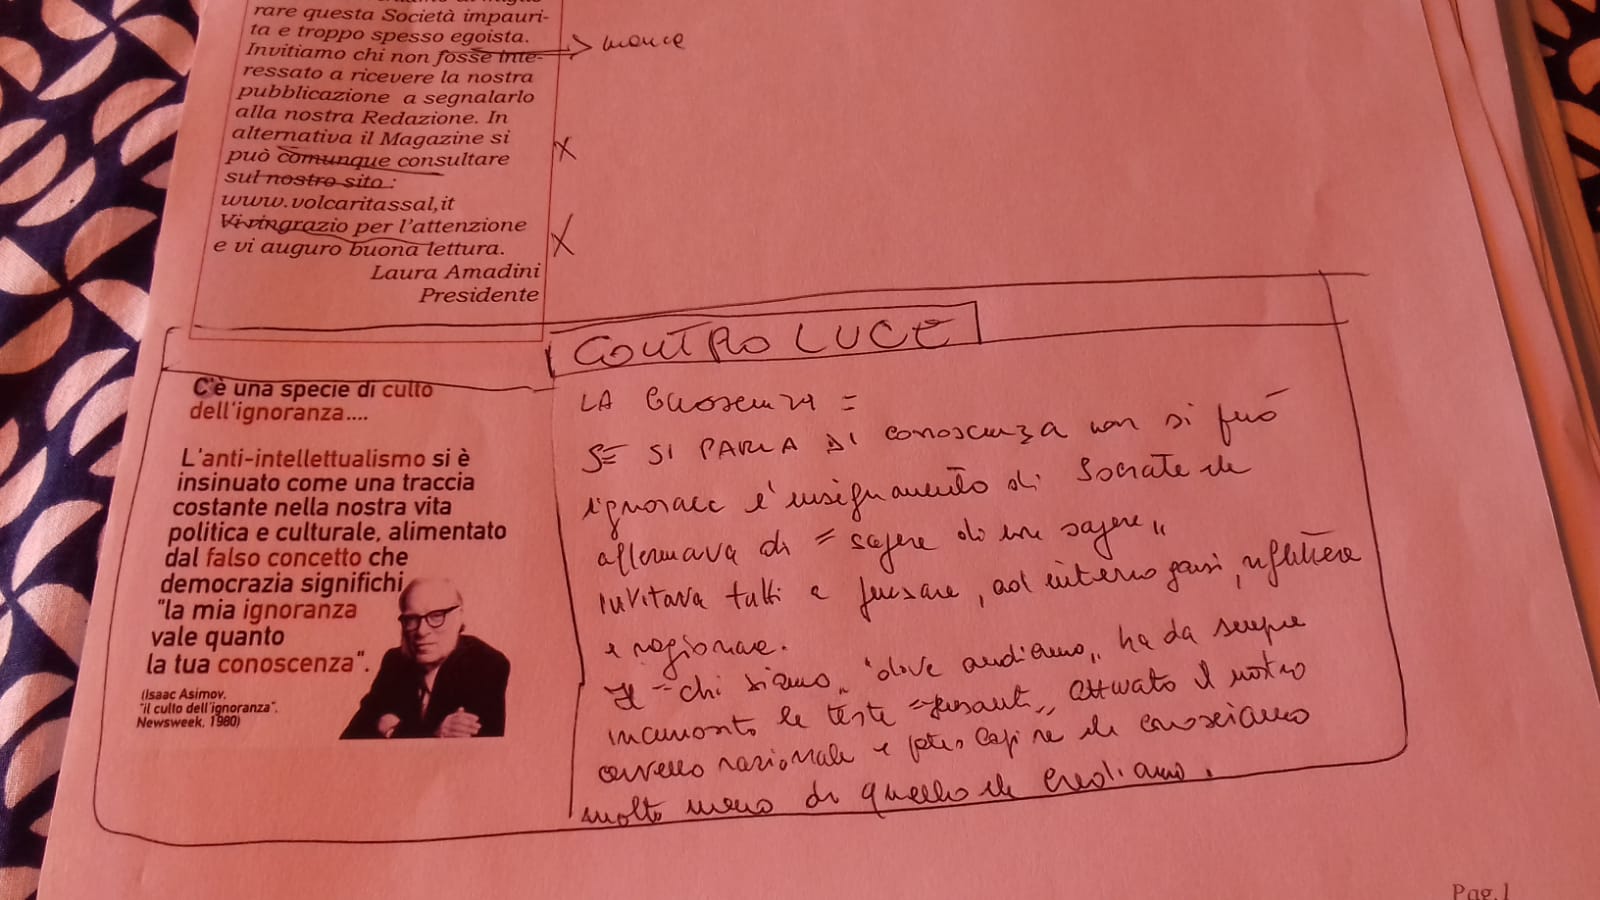 rare questa Società impauri-
ta e troppo spesso egoista.
Invitiamo chi non fosse inte-
ressato a ricevere la nostra
pubblicazione a segnalarlo
alla nostra Redazione. In
alternativa il Magazine si
può comunque consultare
sul nostro sito :
www.volcaritassal,it
Vi ringrazio per l'attenzione
e vi auguro buona lettura.
Laura Amadini
Presidente
C'è una specie di culto
dell'ignoranza....
L'anti-intellettualismo si è
insinuato come una traccia
costante nella nostra vita
politica e culturale, alimentato
dal falso concetto che
democrazia significhi
"la mia ignoranza
vale quanto
la tua conoscenza".
(Isaac Asimov,
"il culto dell'ignoranza",
Newsweek, 1980)
CONTRO LUCE
LA
SE SI PARLA DI conoscenza non si può
ignorare l'insegnamento di Socrate che
affermava di = sapere di non sapere"
Invitava tutti a pensare, ad interrogarsi, riflettere
e ragionare.
Il "chi siamo" "dove andiamo" ha da sempre
incuriosito le teste "pensanti" attivato il nostro
cervello razionale e capire che conosciamo
molto meno di quello che crediamo.
Pag.1